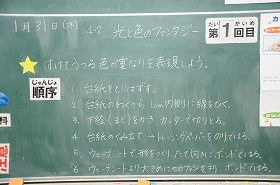 1月31日(木) 4-2 光と色のファンタジー
だい かいめ
第1回目
すけてうつる色の重なりを表現しよう。
じゅんじょ
順序
1. 台紙をとりはずす。
2. 台紙のわくから1cm内側に線をひく。
3. 下絵(まど)をかき、カッターで切りとる。
4. 台紙のくみ立て→トレーシングペーパーをのりではる。
5. ウェーブシートで形をつくり、たて向きにボンドではる。
6. ウェーブシートより大きめに
ボンドではる。